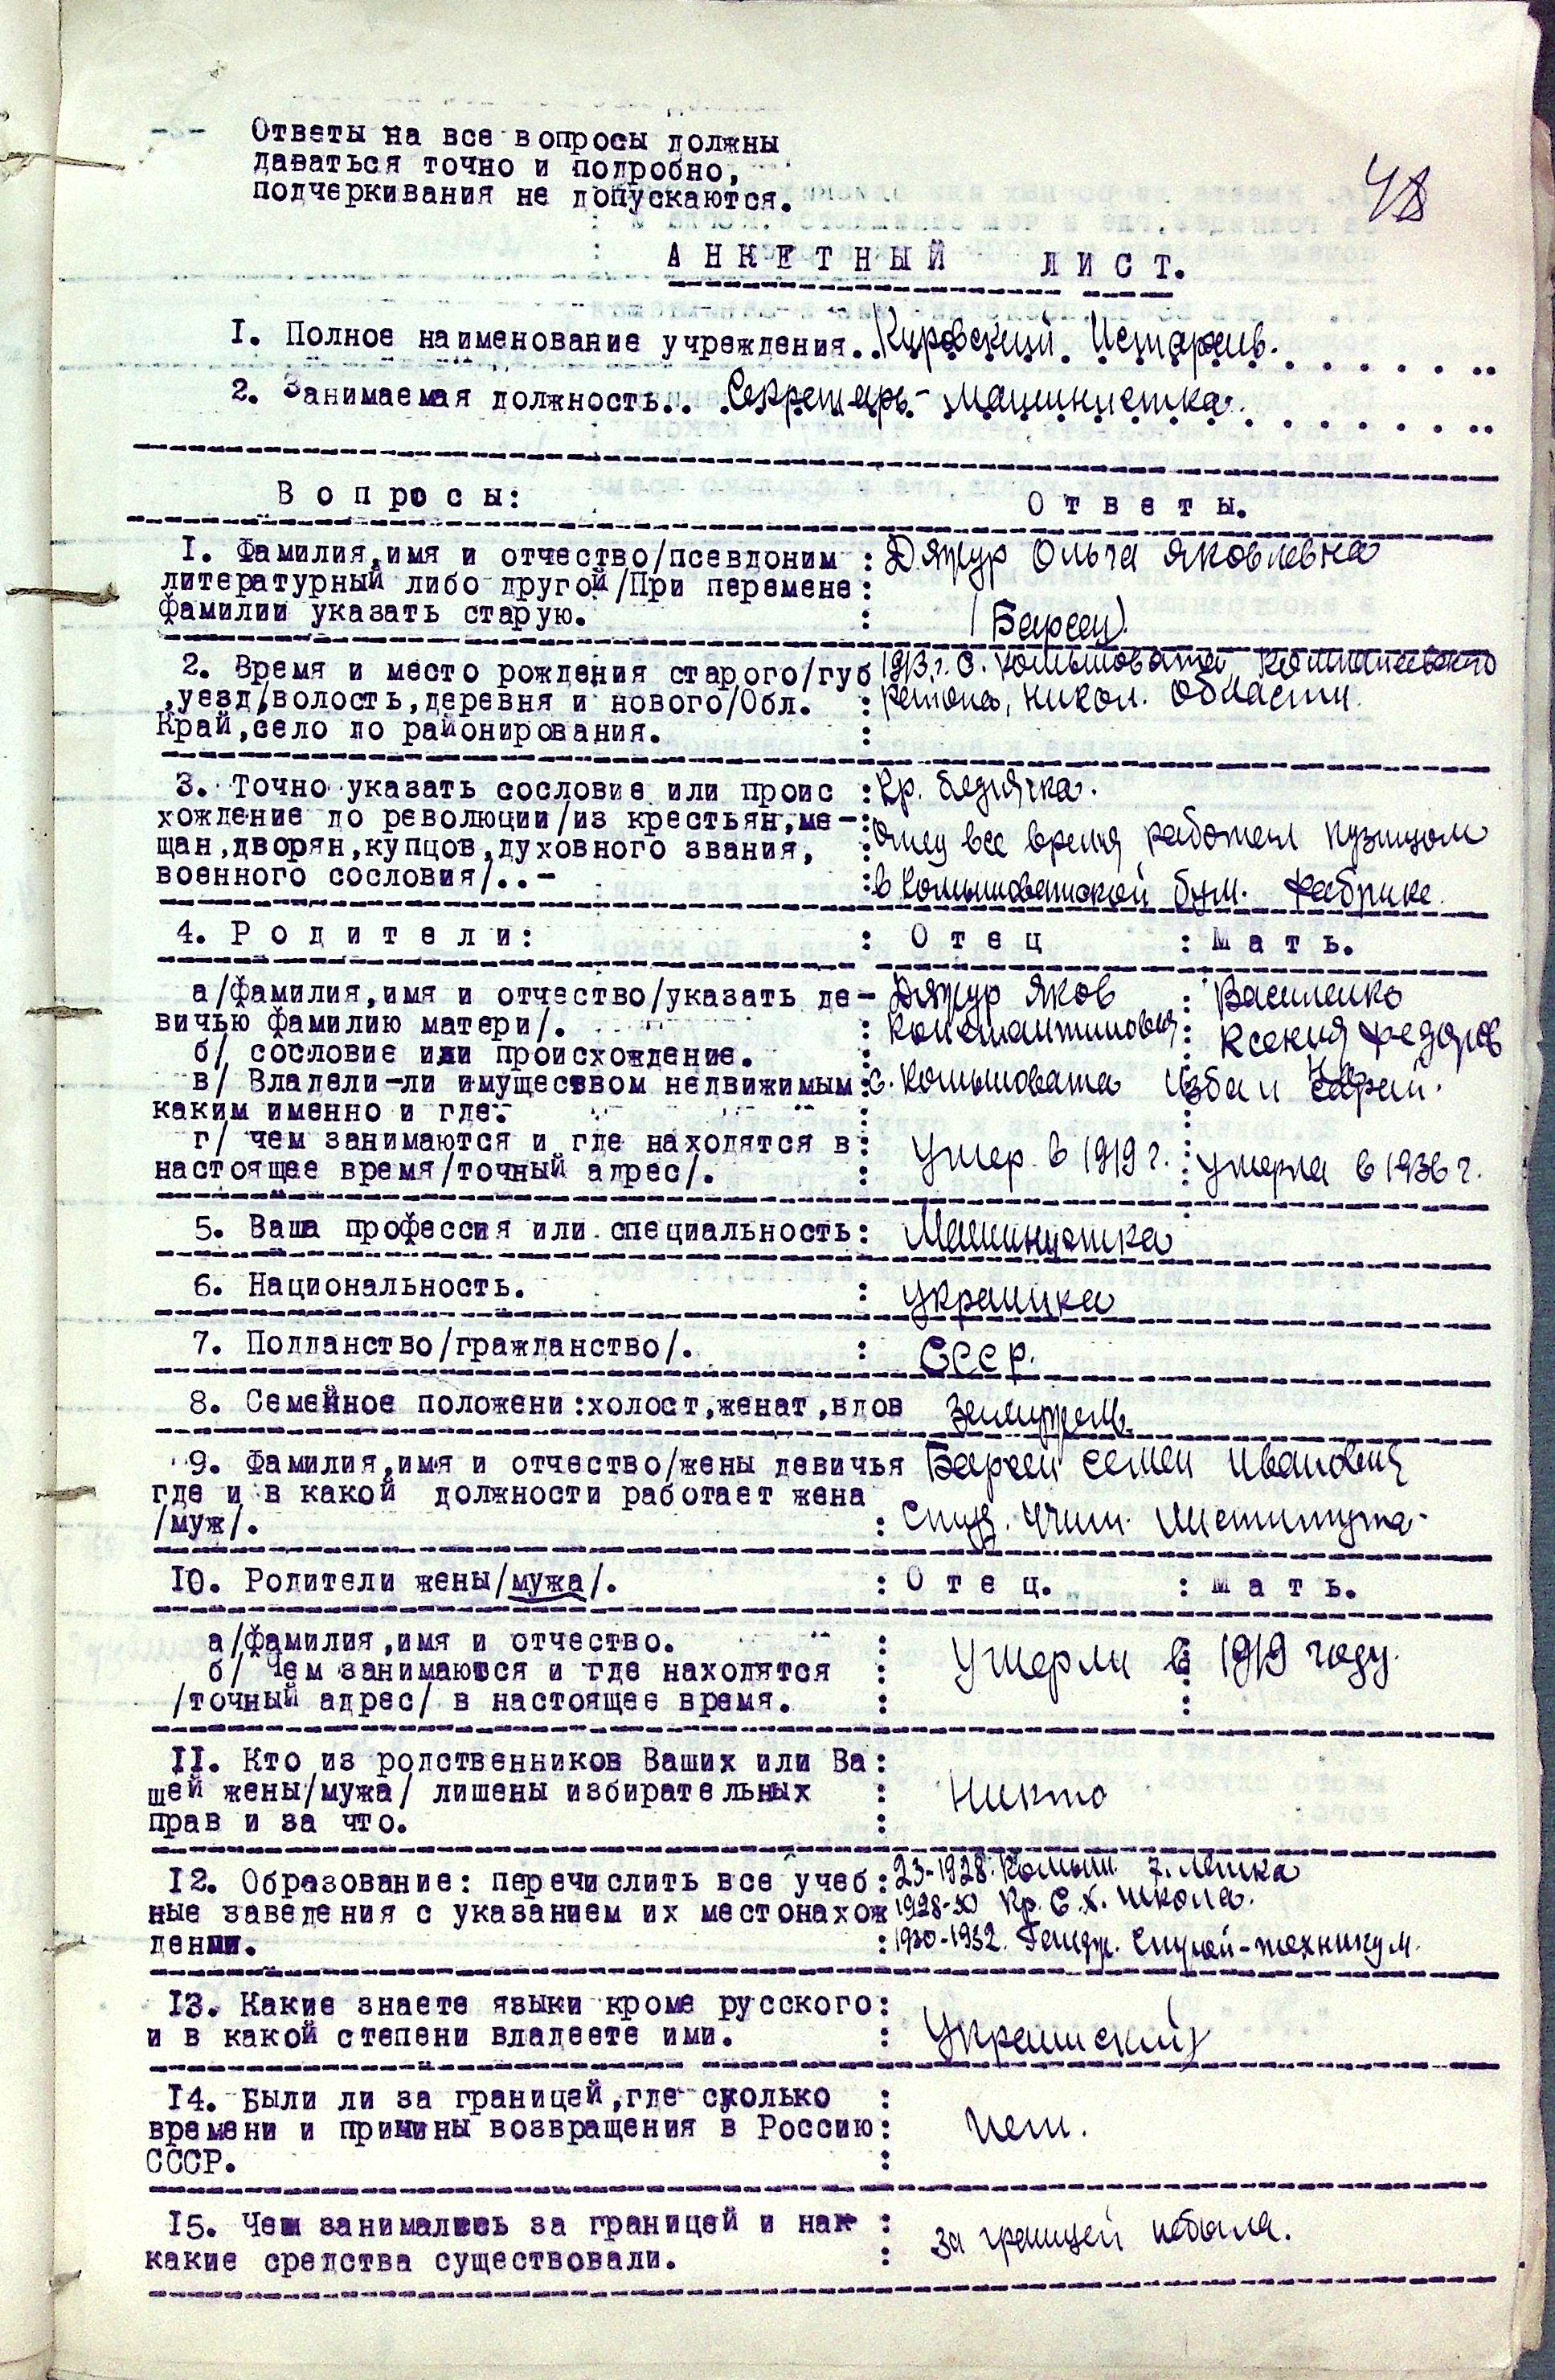 Ответы на все вопросы должны
даваться точно и подробно,
подчеркивания не допускаются.
48
АНКЕТНЫЙ ЛИСТ.
I. Полное наименование учреждения.. Кировский Истархив.
2. Занимаемая должность.. Секретарь-машинистка.
Вопросы: Ответы.
I. Фамилия,имя и отчество/псевдоним : Дяжур Ольга Яковлевна
литературный либо другой/При перемене:
фамилии указать старую. : (Барсен).
2. Время и место рождения старого/губ 1913 г. С. Комышовата
,уезд,волость,деревня и нового/Обл. : района, Никол. области.
Край,село до районирования. :
3. Точно указать сословие или проис : Кр. беднячка.
хождение до революции/из крестьян,ме-:
щан,дворян,купцов,духовного звания, : Отец все время работал кузнецом
военного сословия/..- : в Комышоватской бум. фабрике.
4. Родители: : Отец : Мать.
а/фамилия,имя и отчество/указать де- Дяжур Яков : Василенко
вичью фамилию матери/. : Константинович : Ксения Федоров
на
б/ сословие или происхождение. :
в/ Владели-ли имуществом недвижимым : с. Комышовата изба и сарай.
каким именно и где.
г/ чем занимаются и где находятся в : Умер в 1919 г. : Умерла в 1936 г.
настоящее время/точный адрес/. :
5. Ваша профессия или специальность: Машинистка
6. Национальность. : украинка
7. Подданство/гражданство/. : СССР.
8. Семейное положени:холост,женат,вдов замужем.
9. Фамилия,имя и отчество/жены девичья Барсен Семен Иванович
где и в какой должности работает жена
/муж/. : Студ. Учит. Института.
IO. Родители жены/мужа/. : Отец. : Мать.
а/фамилия,имя и отчество. :
б/ Чем занимаются и где находятся : Умерли в 1919 году.
/точный адрес/ в настоящее время. :
II. Кто из родственников Ваших или Ва:
шей жены/мужа/ лишены избирательных : Никто
прав и за что. :
I2. Образование: перечислить все учеб: 23-1928. Комыш. 7. летка
ные заведения с указанием их местонахож 1928-30 Кр. С.х. школа.
дении. : 1930-1932. техникум.
I3. Какие знаете языки кроме русского:
и в какой степени владеете ими. : Украинский
I4. Были ли за границей,где сколько :
времени и причины возвращения в Россию: Нет.
СССР. :
I5. Чем занимались за границей и нак :
какие средства существовали. : за границей небыла.